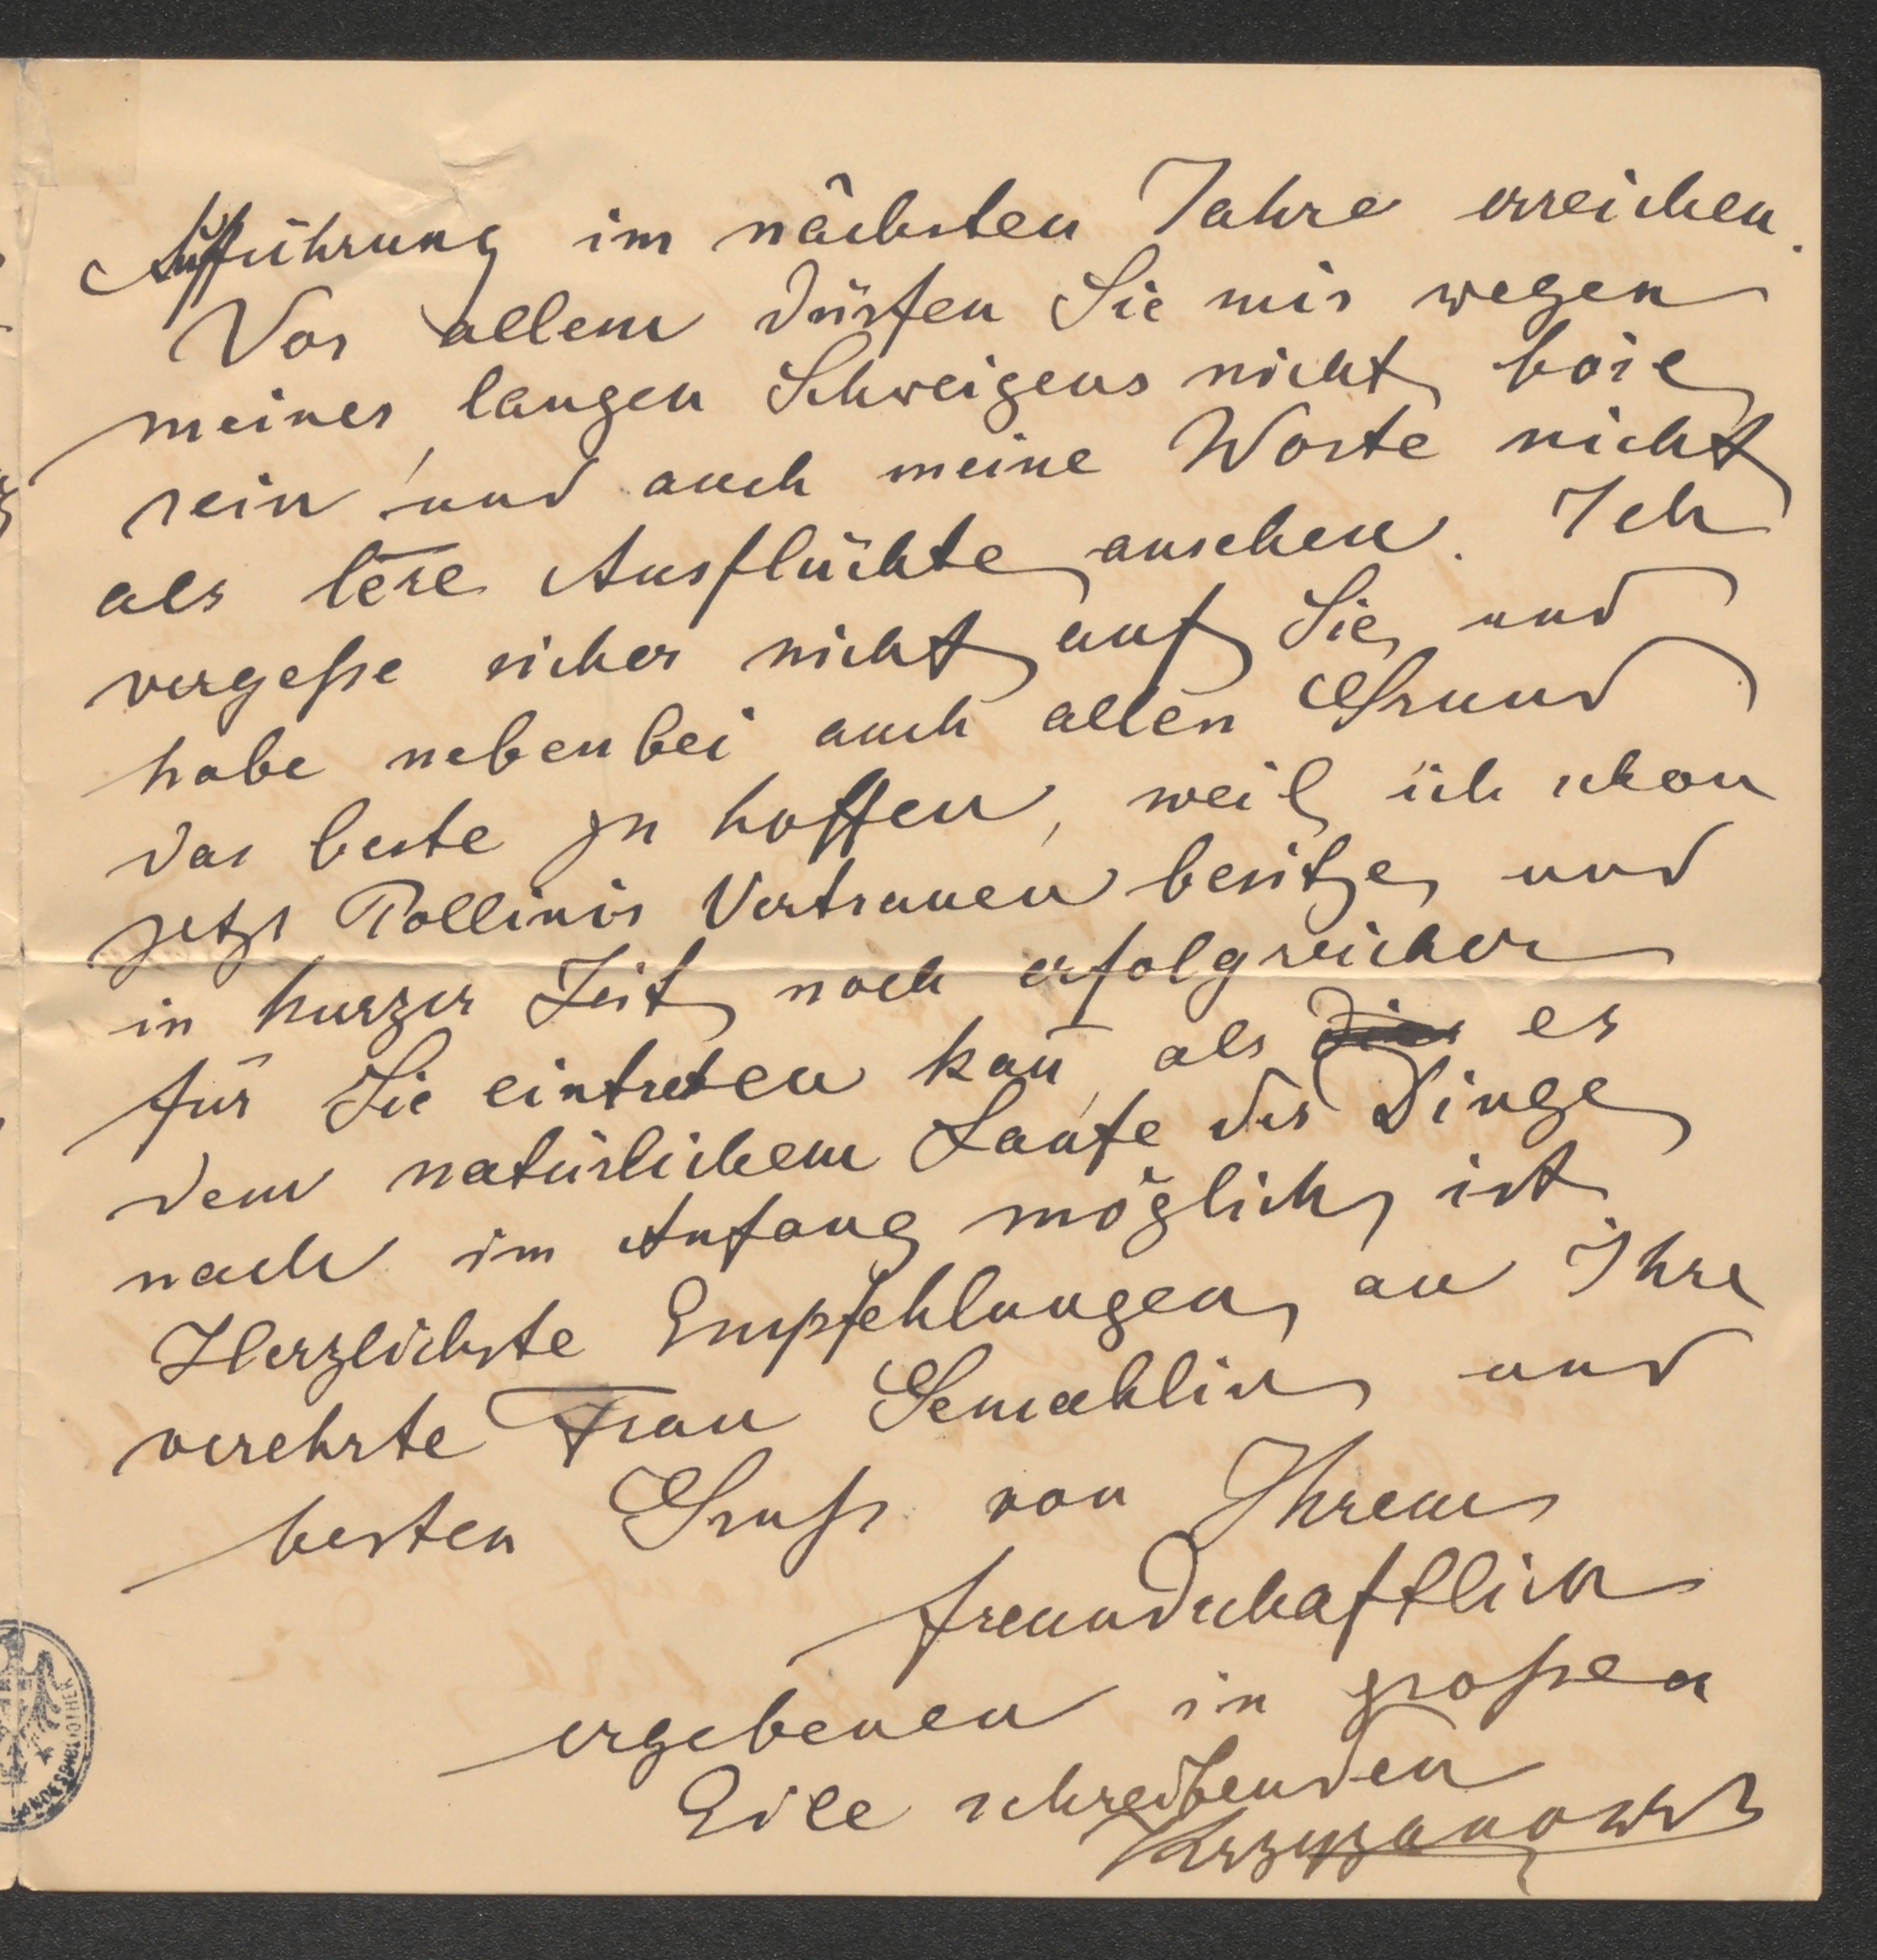 Aufführung im nächsten Jahre erreichen.
Vor allem dürfen Sie mir wegen
meines langen Schweigens nicht böse
sein, und auch meine Worte nicht
als lēre Ausflüchte ansehen. Ich
vergeße sicher nicht auf Sie, und
habe nebenbei auch allen Grund
das beste zu hoffen, weil ich schon
jetzt Pollinis Vertrauen besitze, und
in kurzer Zeit noch erfolgreicher
für Sie eintreten kan̄, als es
dem natürlichem Laufe der Dinge
nach im Anfang möglich ist.
Herzlichste Empfehlungen an Ihre
verehrte Frau Gemahlin und
besten Gruß von Ihrem
freundschaftlich
ergebenen in großer
Eile schreibenden
Krzyzanowski
LANDESBIBLIOTHEK